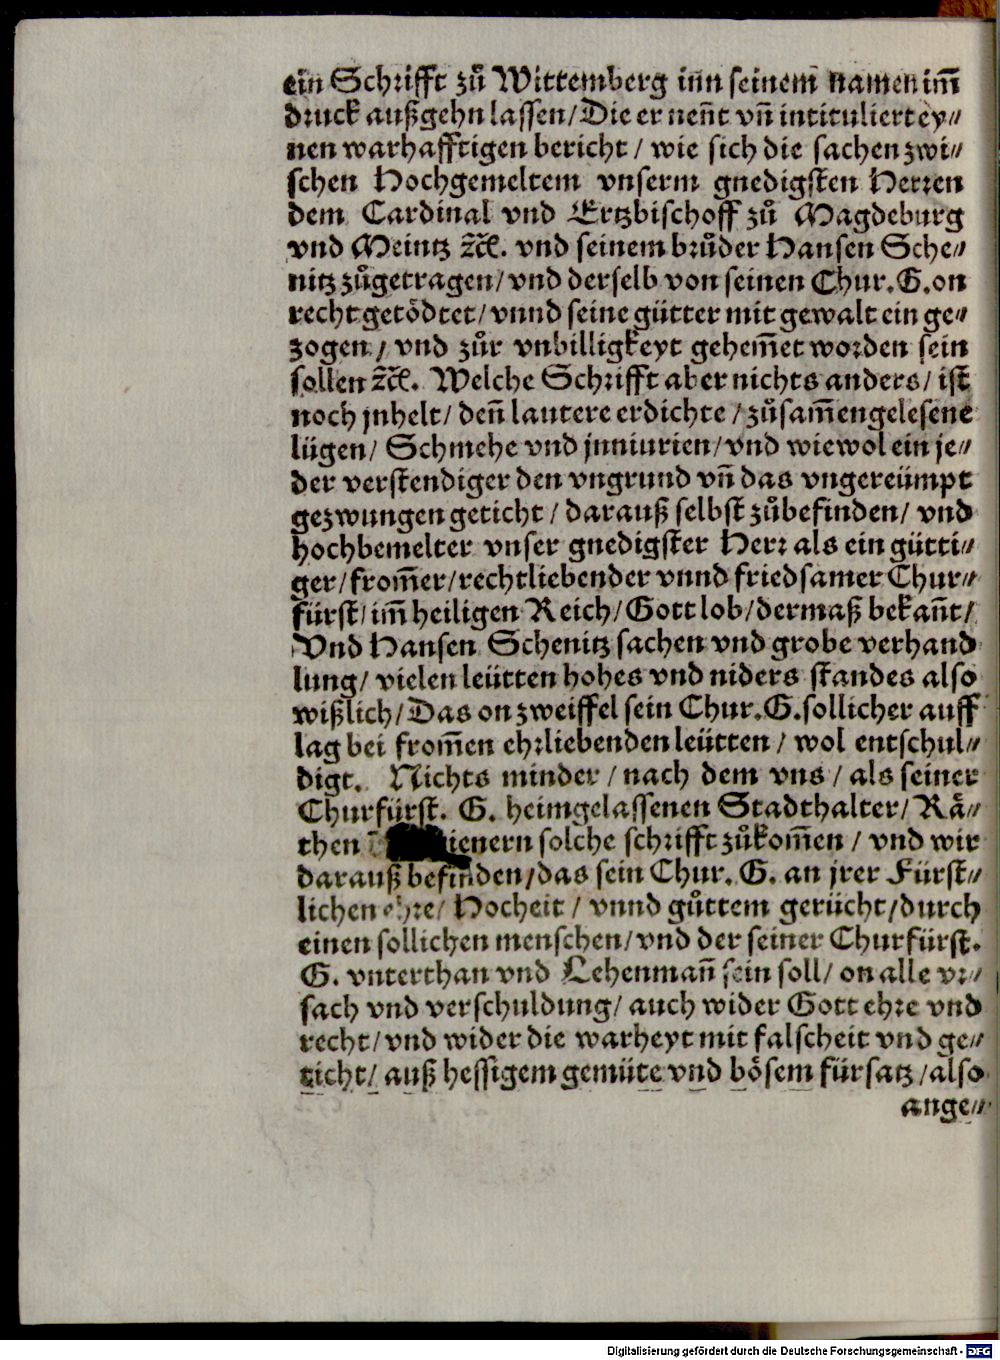 ein Schrifft zů Wittemberg inn seinem namen im̃
druck außgehn lassen/Die er nen̄t vn̄ intituliert ey⸗
nen warhafftigen bericht/ wie sich die sachen zwi⸗
schen Hochgemeltem vnserm gnedigsten Herren
dem Cardinal vnd Ertzbischoff zů Magdeburg
vnd Meintz ꝛc̃. vnd seinem brůder Hansen Sche⸗
nitz zůgetragen/ vnd derselb von seinen Chur.G.on
recht getödtet/ vnnd seine gütter mit gewalt ein ge⸗
zogen/ vnd zůr vnbilligkeyt gehem̃et worden sein
sollen ꝛc̃. Welche Schrifft aber nichts anders/ ist
noch jnhelt/ den̄ lautere erdichte/ zůsam̃engelesene
lügen/ Schmehe vnd jnniurien/ vnd wiewol ein je⸗
der verstendiger den vngrund vn̄ das vngereümpt
gezwungen geticht/ darauß selbst zůbefinden/ vnd
hochbemelter vnser gnedigster Herr als ein gütti⸗
ger/ from̃er/ rechtliebender vnnd friedsamer Chur⸗
fürst/ im̃ heiligen Reich/ Gott lob/ dermaß bekan̄t/
Vnd Hansen Schenitz sachen vnd grobe verhand
lung/ vielen leütten hohes vnd niders standes also
wißlich/ Das on zweiffel sein Chur.G.sollicher auff
lag bei from̃en ehrliebenden leütten/ wol entschul⸗
digt. Nichts minder/ nach dem vns/ als seiner
Churfürst. G. heimgelassenen Stadthalter/ Rä⸗
then ienern solche schrifft zůkom̃en/ vnd wir
darauß befinden/das sein Chur. G. an jrer Fürst⸗
lichen ehre/ Hocheit/ vnnd gůttem gerücht/durch
einen sollichen menschen/ vnd der seiner Churfürst.
G. vnterthan vnd Lehenman̄ sein soll/ on alle vr⸗
sach vnd verschuldung/ auch wider Gott ehre vnd
recht/ vnd wider die warheyt mit falscheit vnd ge⸗
ticht/ auß hessigem gemüte vnd bösem fürsatz/also
ange⸗
Digitalisierung gefördert durch die Deutsche Forschungsgemeinschaft - DFG